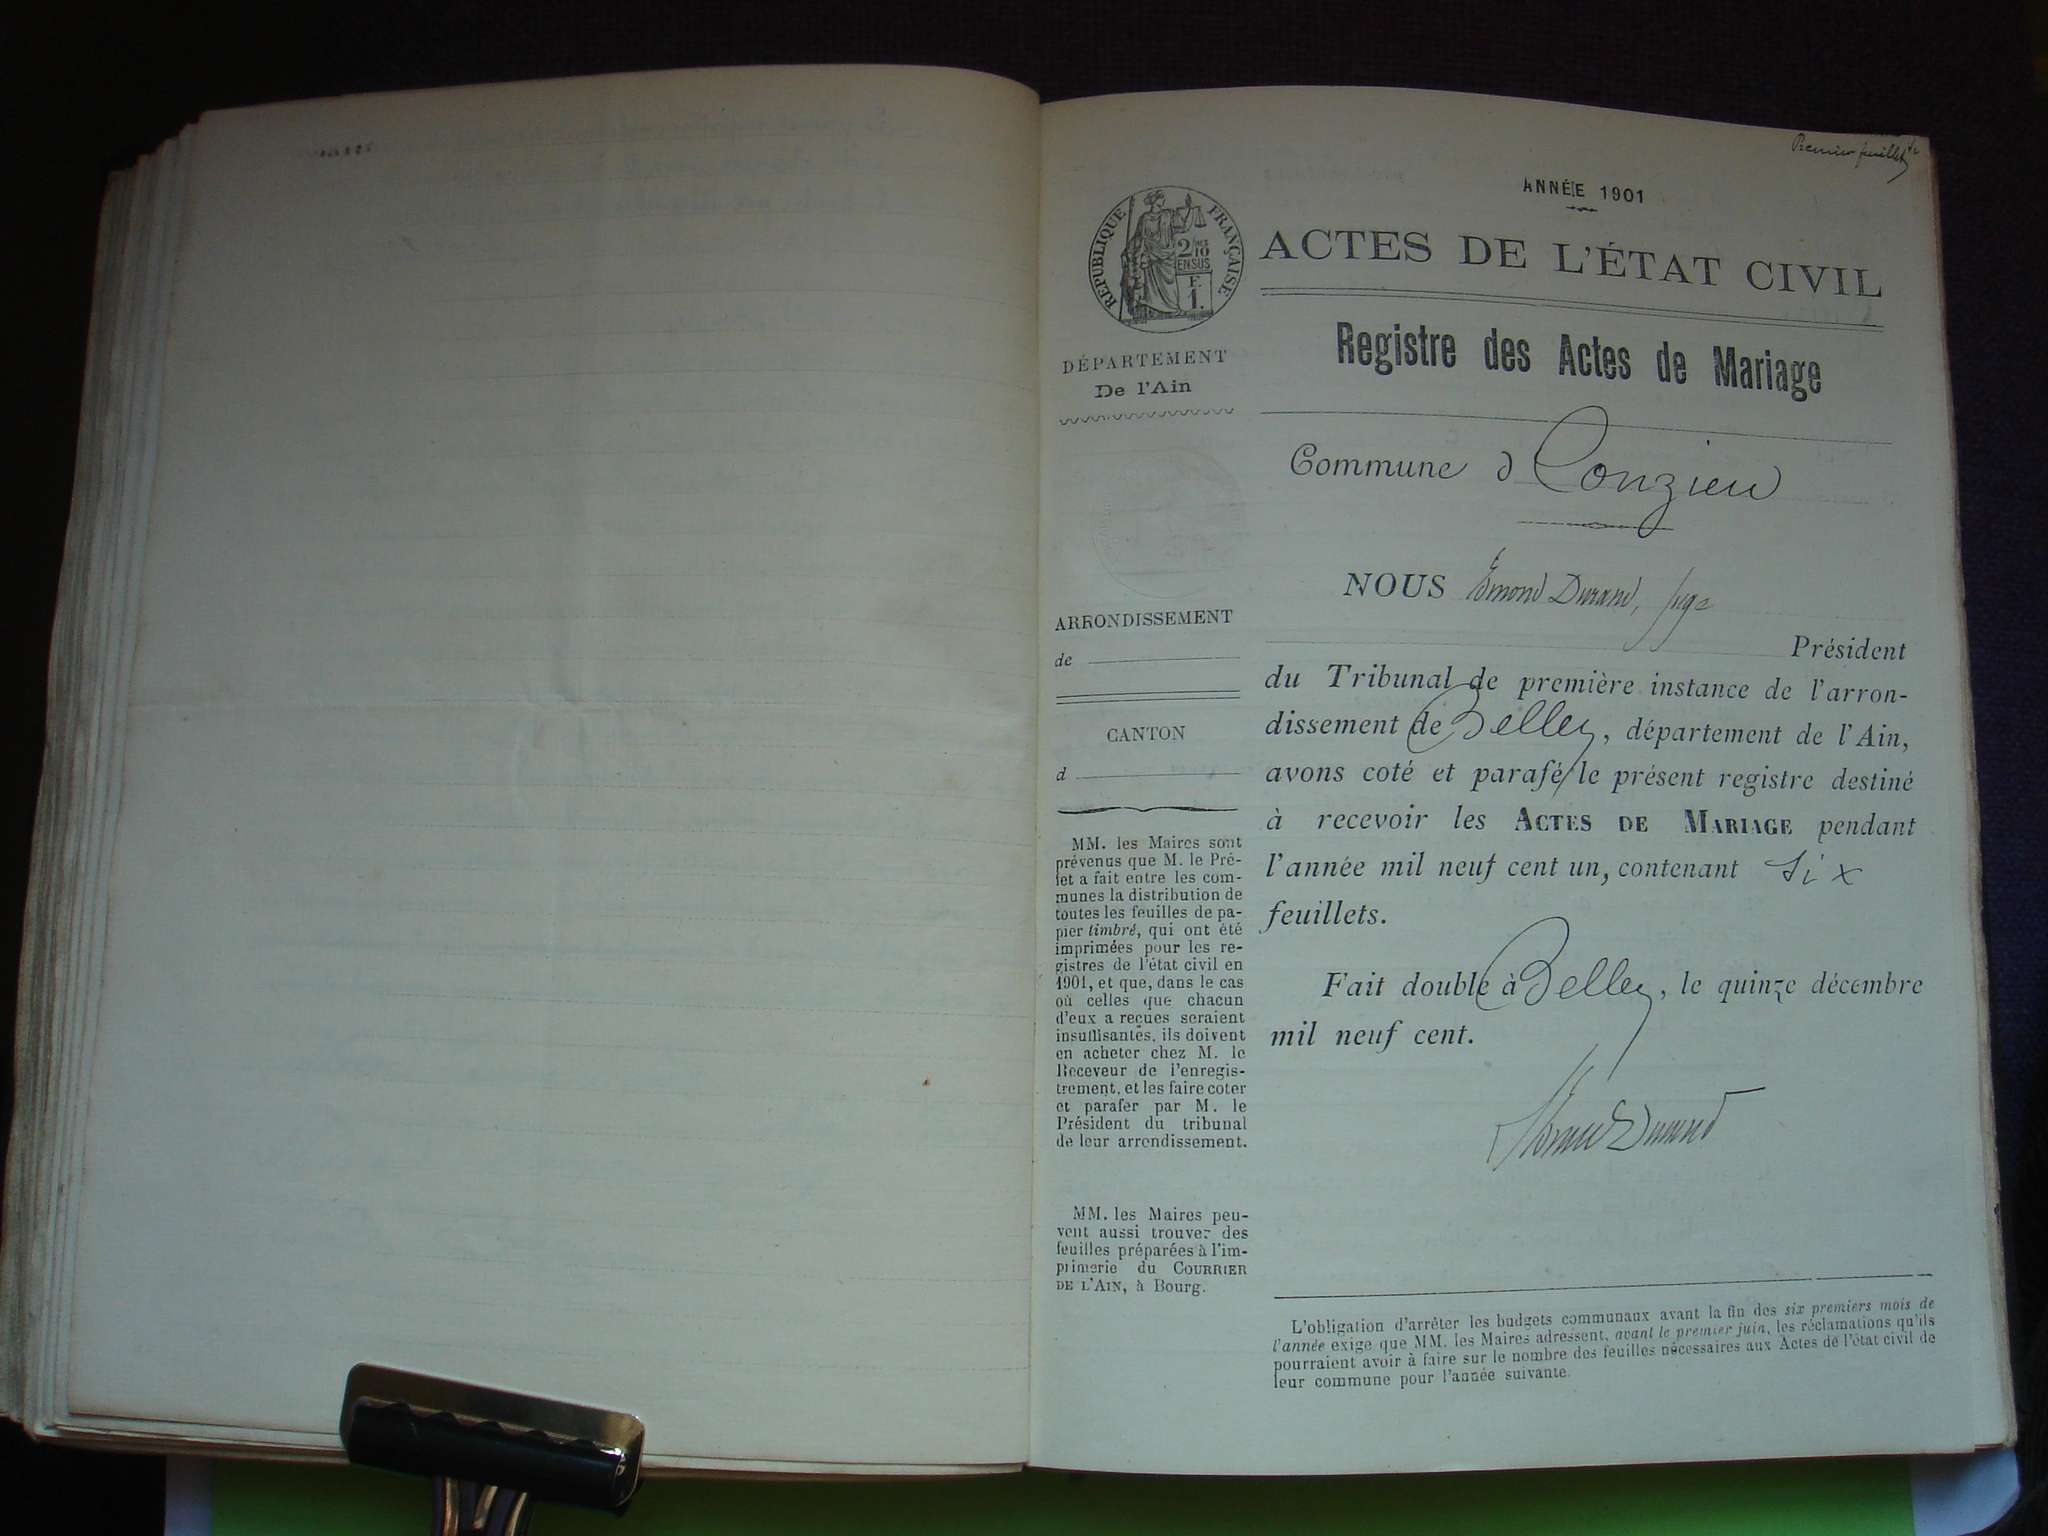 Premier feuillet
ANNÉE 1901
ACTES DE L'ÉTAT CIVIL
RÉPUBLIQUE FRANÇAISE
2/10
EN SUS
F.
1.
Registre des Actes de Mariage
DÉPARTEMENT
De l'Ain
Commune d Conzieu
NOUS Edmond Durand, juge
Président
du Tribunal de première instance de l'arron-
dissement de Belley, département de l'Ain,
avons coté et parafé le présent registre destiné
à recevoir les ACTES DE MARIAGE pendant
l'année mil neuf cent un, contenant six
feuillets.
Fait double à Belley, le quinze décembre
mil neuf cent.
Edmond Durand
ARRONDISSEMENT
de
CANTON
d
MM. les Maires sont
prévenus que M. le Pré-
fet a fait entre les com-
munes la distribution de
toutes les feuilles de pa-
pier timbré, qui ont été
imprimées pour les re-
gistres de l'état civil en
1901, et que, dans le cas
où celles que chacun
d'eux a reçues seraient
insuffisantes, ils doivent
en acheter chez M. le
Receveur de l'enregis-
trement, et les faire coter
et parafer par M. le
Président du tribunal
de leur arrondissement.
MM. les Maires peu-
vent aussi trouver des
feuilles préparées à l'im-
primerie du COURRIER
DE L'AIN, à Bourg.
L'obligation d'arrêter les budgets communaux avant la fin des six premiers mois de
l'année exige que MM. les Maires adressent, avant le premier juin, les réclamations qu'ils
pourraient avoir à faire sur le nombre des feuilles nécessaires aux Actes de l'état civil de
leur commune pour l'année suivante.